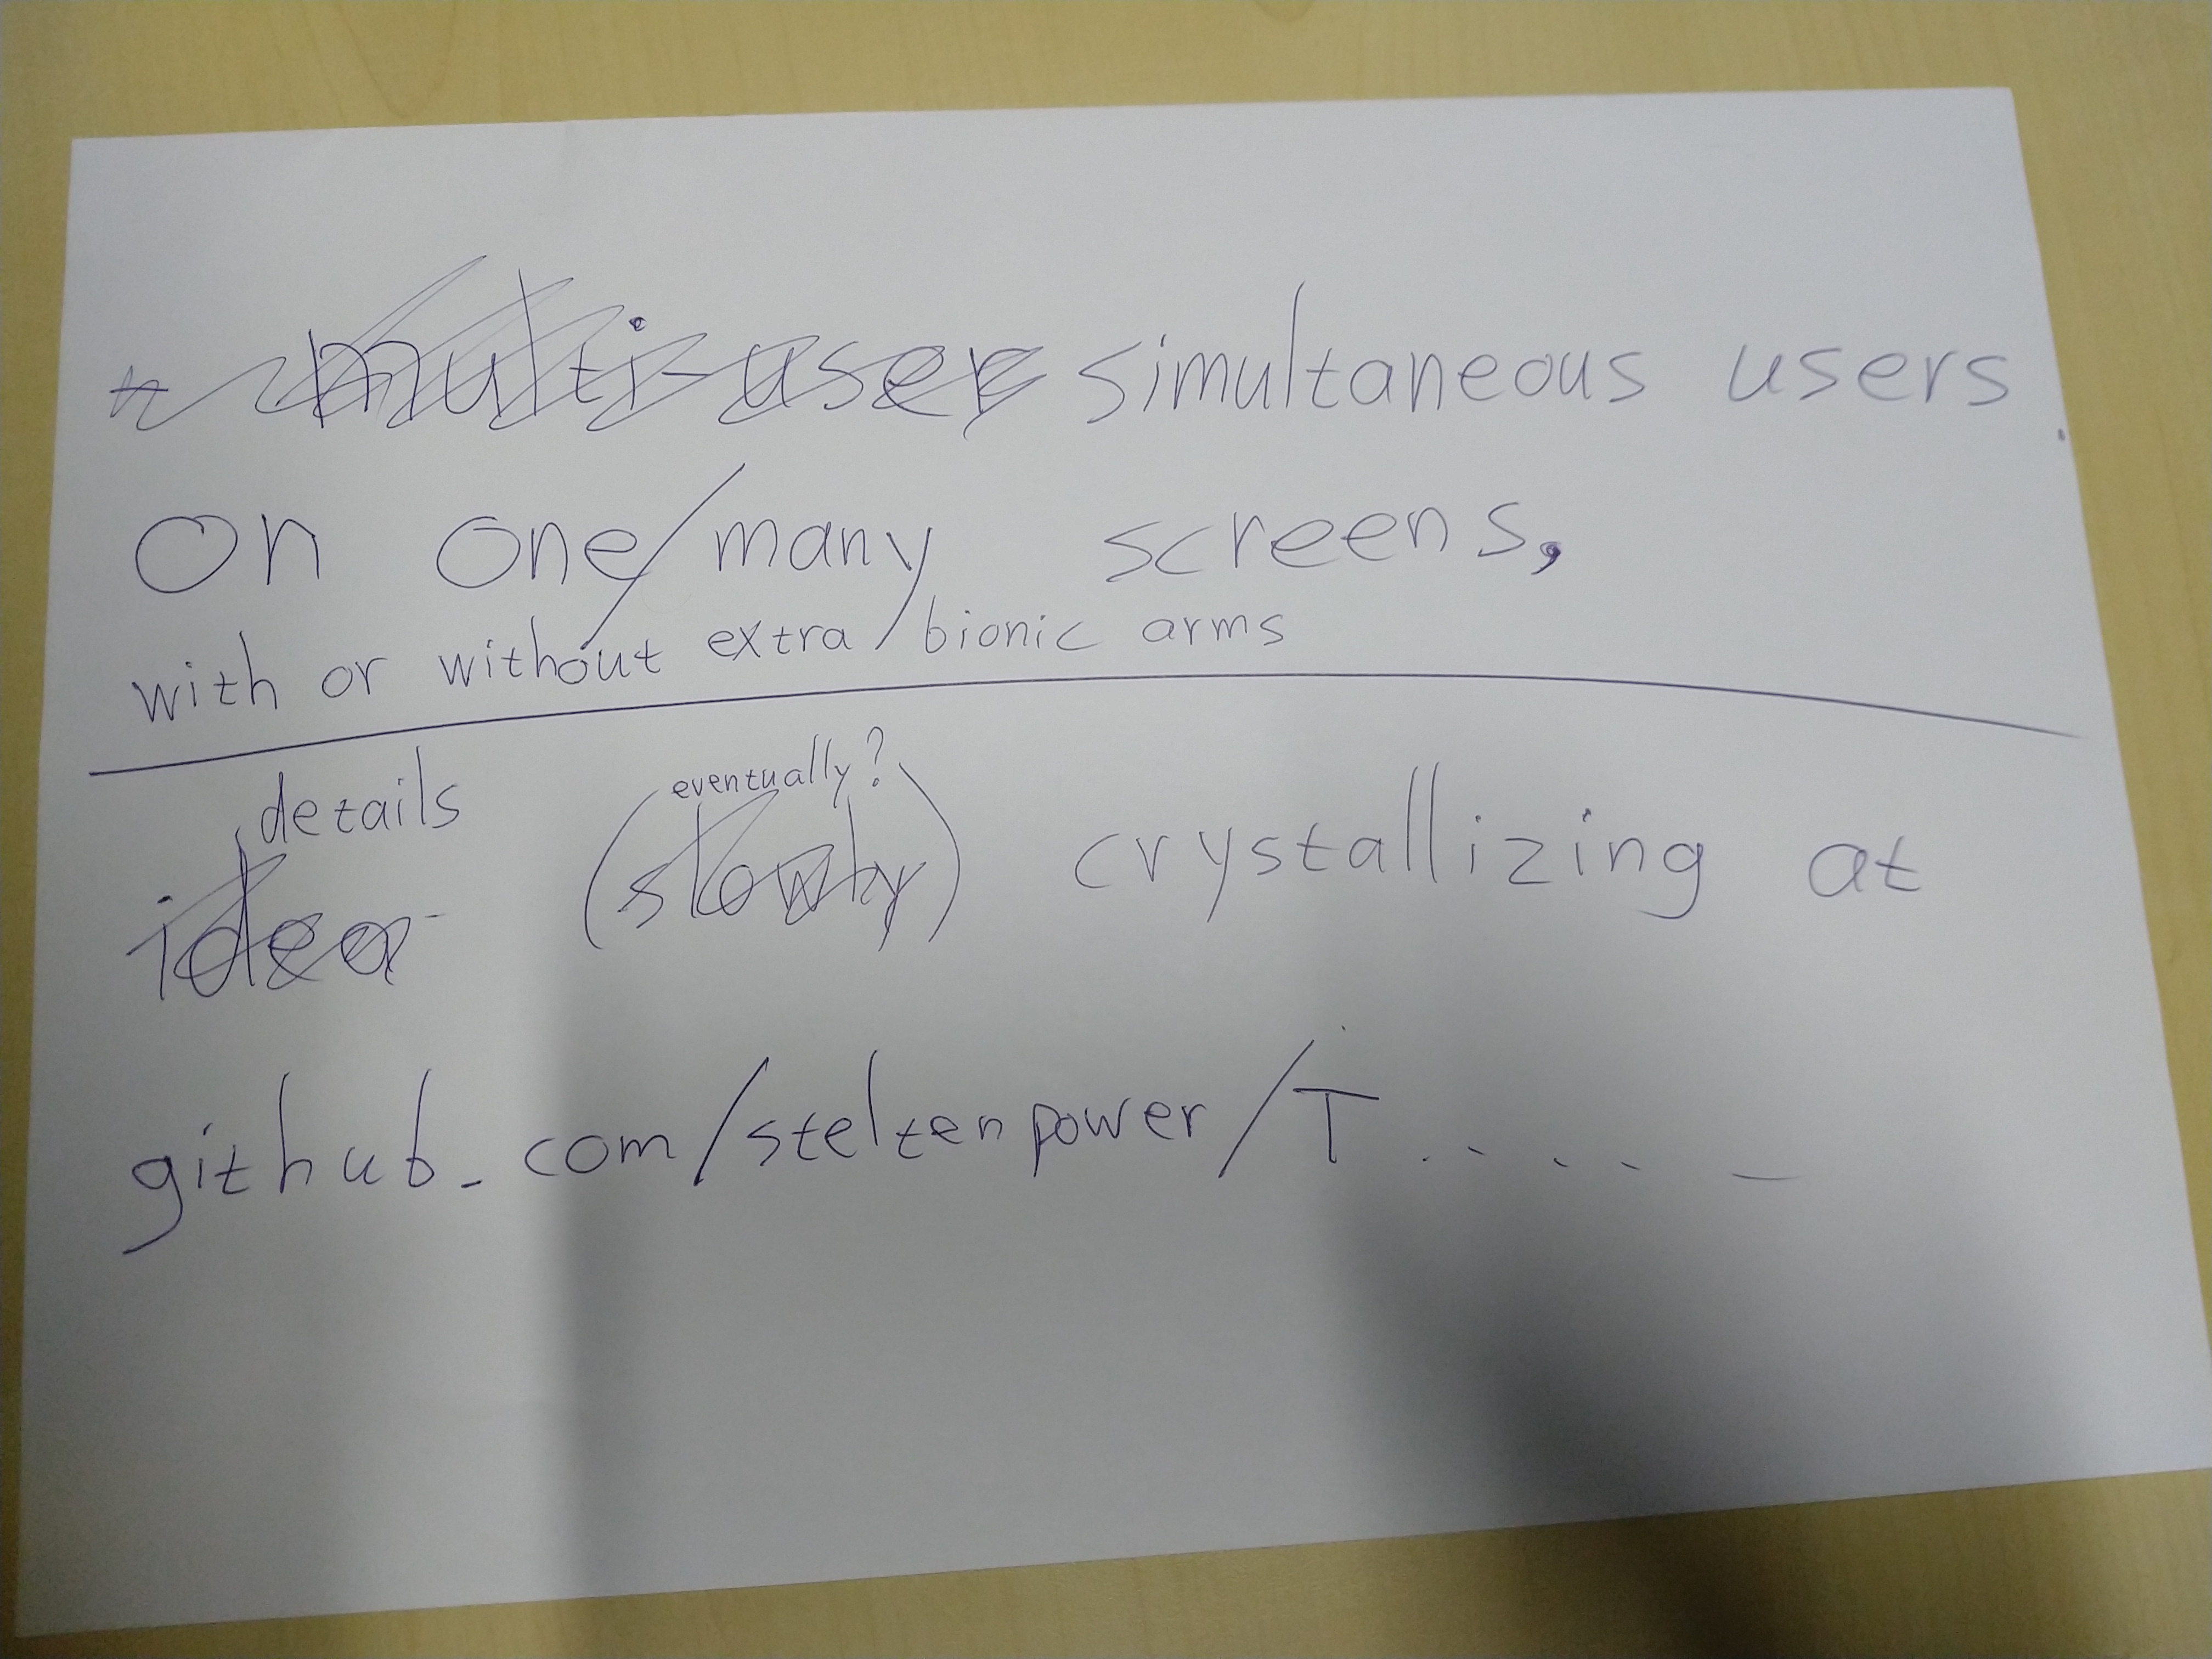 multi-user simultaneous users
on one/many screens,
with or without extra/bionic arms
details eventually?
idea (slowly) crystallizing at
github.com/steltenpower/T....._